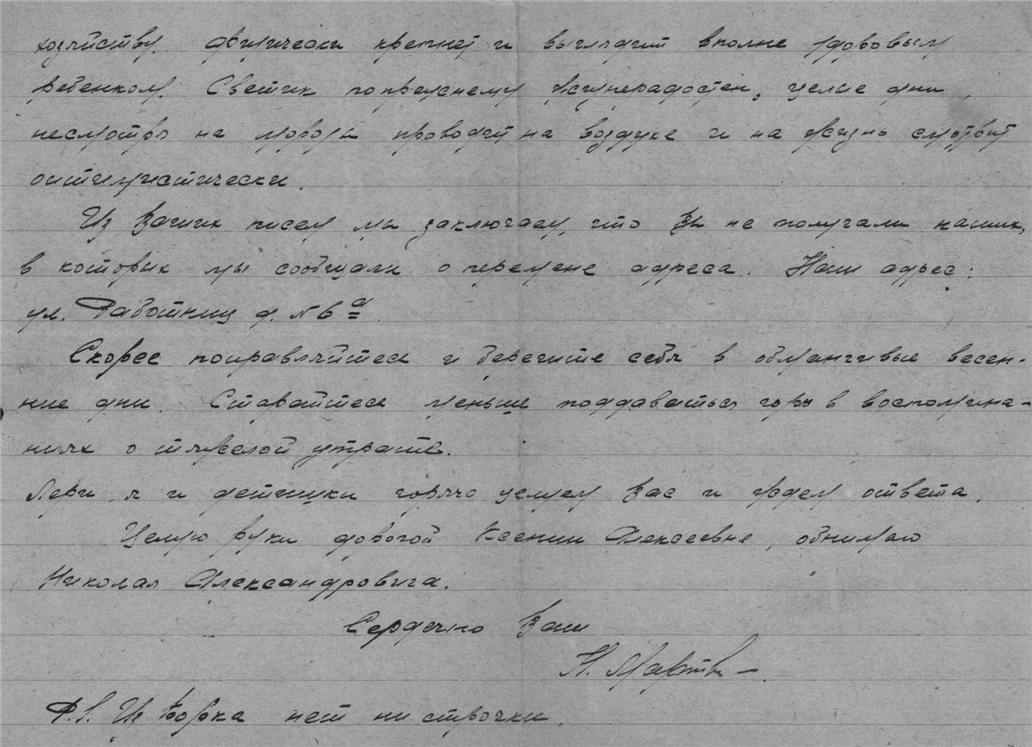 хозяйству. Физически крепнет и выглядит вполне здоровым
ребенком. Светик попрежнему жизнерадостен, целые дни,
несмотря на морозы проводят на воздухе и на жизнь смотрит
оптимистически.
Из Ваших писем мы заключаем, что Вы не получали наших,
в которых мы сообщали о перемене адреса. Наш адрес:
ул. Работниц д. № 6а
Скорее поправляйтесь и берегите себя в обманчивые весен-
ние дни. Старайтесь меньше поддаваться горю в воспомина-
ниях о тяжелой утрате.
я и детишки горячо целуем Вас и ждем ответа.
Целую руки дорогой Ксении Алексеевне, обнимаю
Николая Александровича.
Сердечно Ваш
P.S. Из Борка нет ни строчки.